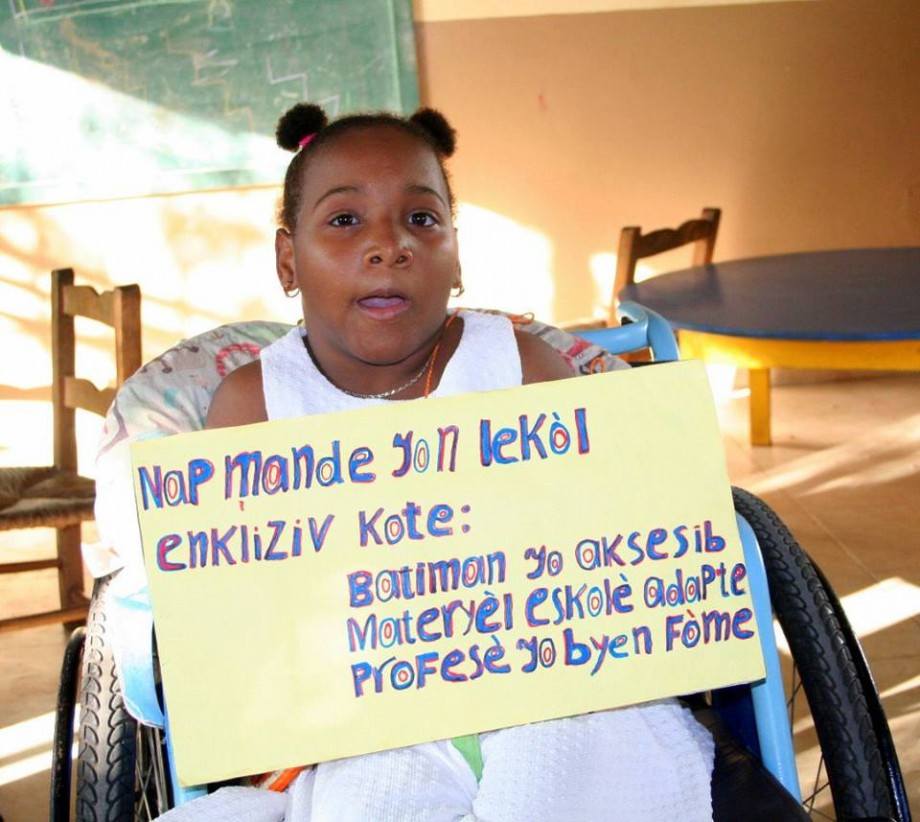 Nap mande yon lekòl
enkliziv kote:
Batiman yo aksesib
Materyèl eskolè adapte
Profesè yo byen fòme